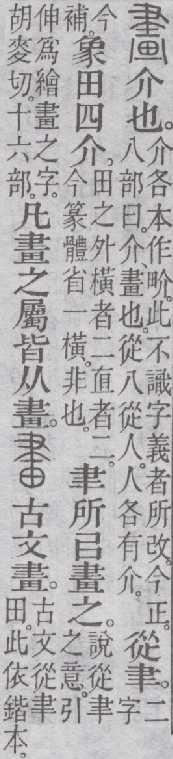 畫介也。介各本作畍。此不識字義者所改。今正。八部曰。介、畫也。從八從人。人各有介。從聿。二字
今補。象田四介。田之外橫者二直者二。今篆體省一橫。非也。聿所㠯畫之。說從聿之意。引
伸爲繪畫之字。胡麥切。十六部。凡畫之屬皆从畫。古文畫。古文從聿田。此依鍇本。